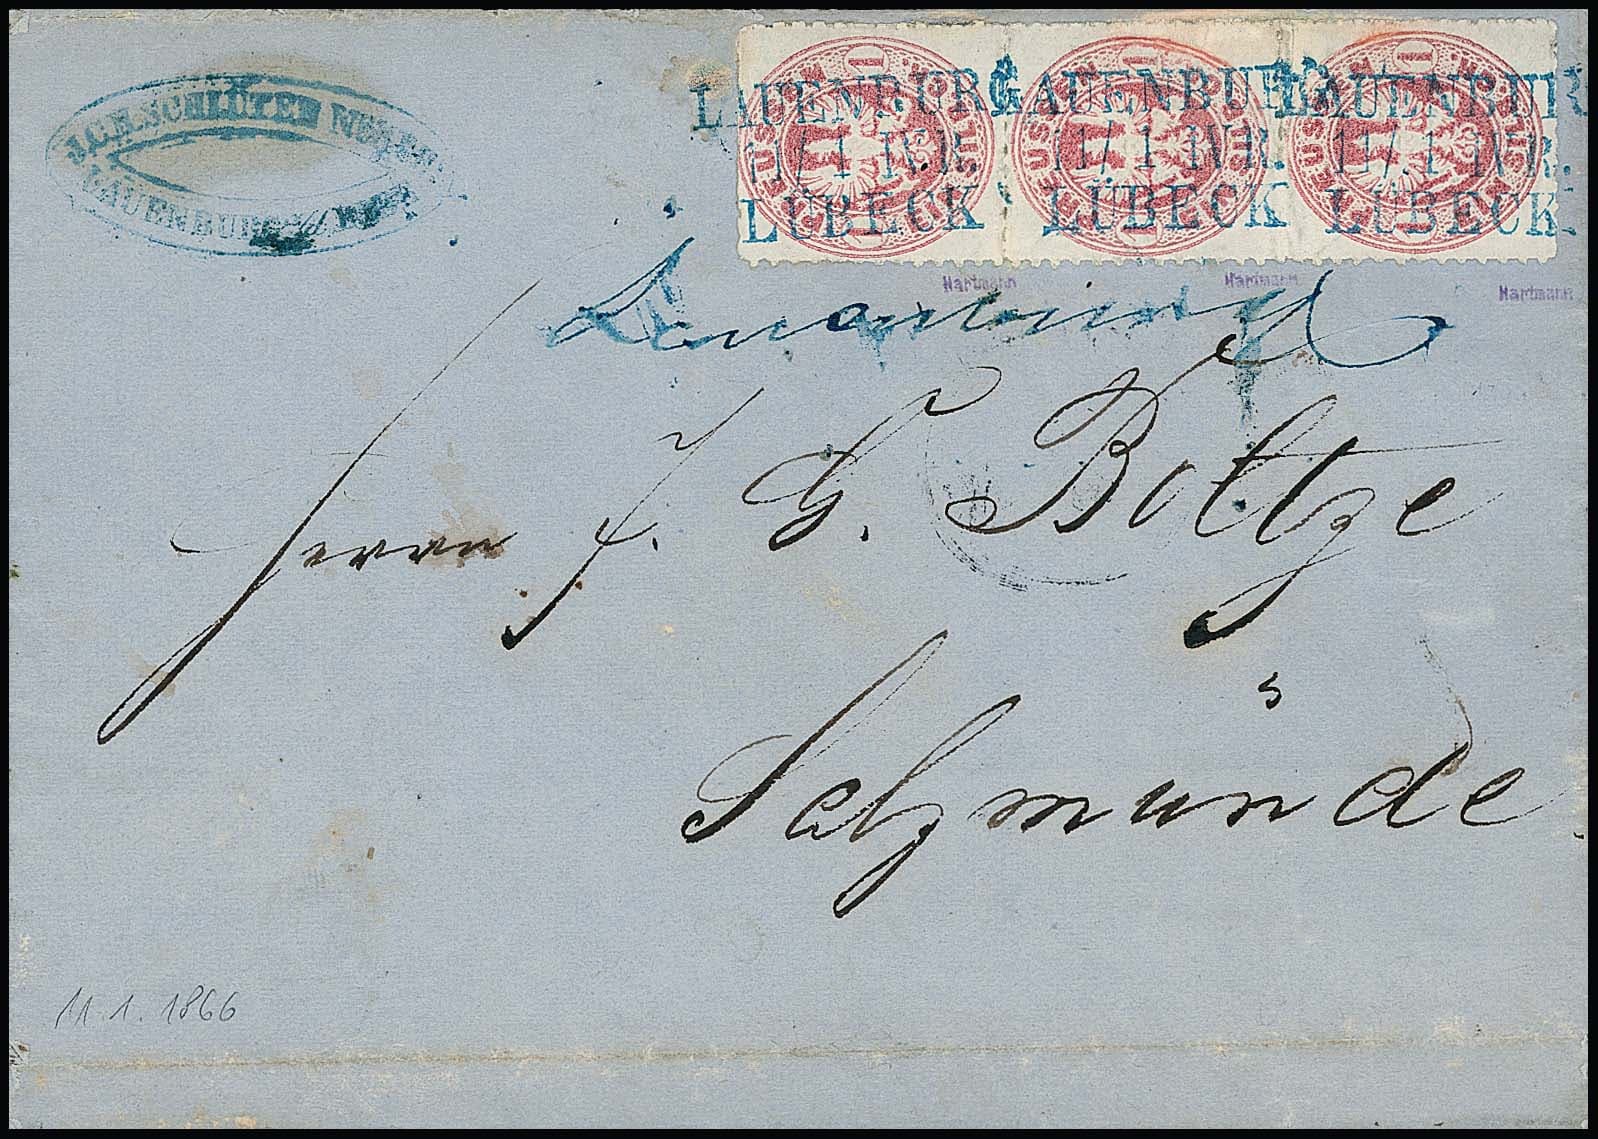 J.C.H. SCHLÜTER
LAUENBURG
LAUENBURG LAUENBURG LAUENBUR
11/1 IV.R. 11/1 IV.R. 11/1 IV.R.
LÜBECK LÜBECK LÜBECK
Hartmann Hartmann Hartmann
Lauenburg
Herrn J. G. Boltze
Salzmünde
11.1.1866